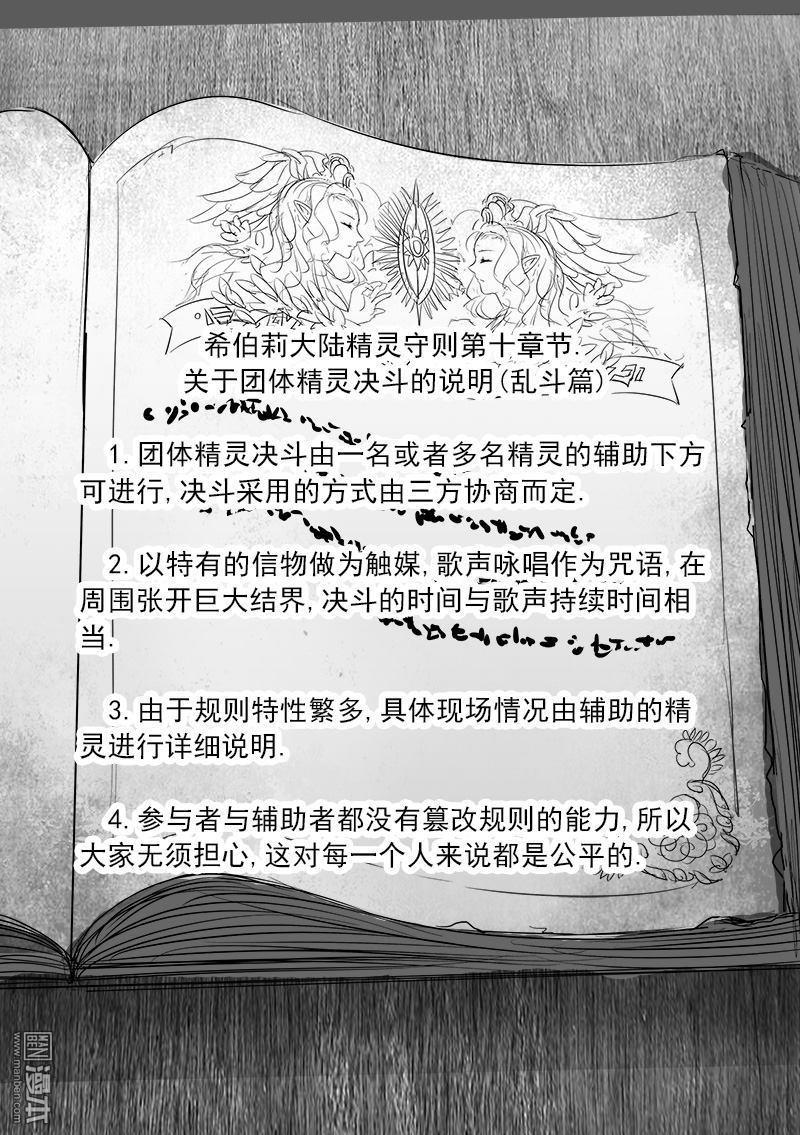 希伯莉大陆精灵守则第十章节.
关于团体精灵决斗的说明(乱斗篇)
1.团体精灵决斗由一名或者多名精灵的辅助下方
可进行,决斗采用的方式由三方协商而定.
2.以特有的信物做为触媒,歌声咏唱作为咒语,在
周围张开巨大结界,决斗的时间与歌声持续时间相
当.
3.由于规则特性繁多,具体现场情况由辅助的精
灵进行详细说明.
4.参与者与辅助者都没有篡改规则的能力,所以
大家无须担心,这对每一个人来说都是公平的.
MAN
BEN
漫本
www.manben.com